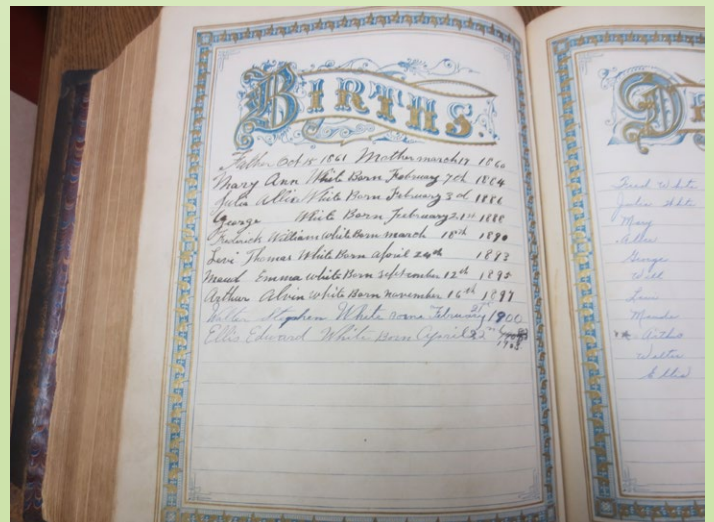 BIRTHS.
Father Oct 15 1861 Mother march 17 1860
Mary Ann White Born February 7th 1884
Julia Allis White Born February 3rd 1886
George White Born February 21st 1888
Fredrick William White Born march 18th 1890
Levi Thomas White Born april 24th 1893
Maud Emma white Born september 12th 1895
Arthur Alvin white Born november 16th 1897
Walter Stephen White Born February 1900
Ellis Edward White Born April 2 1903
Fred White
Julia White
Mary
George
Will
Levi
Maude
Arthur
Walter
Ellis